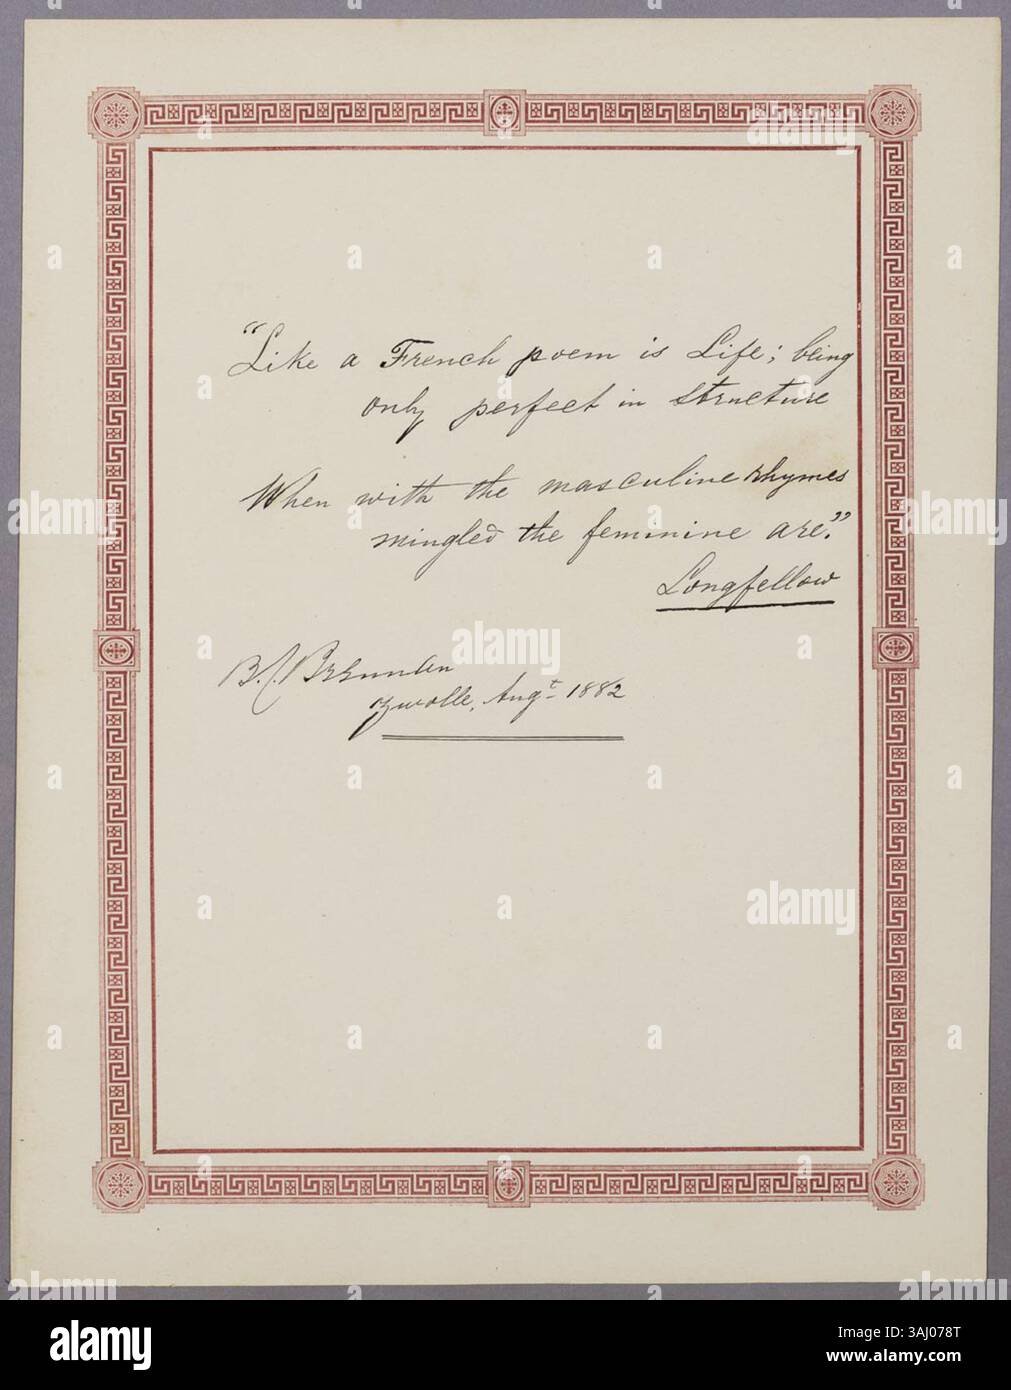 “Like a French poem is Life; being
only perfect in structure
When with the masculine rhymes
mingled the feminine are.”
Longfellow
B. C.
Zwolle, Augt 1882
alamy
Image ID: 3AJ078T
www.alamy.com